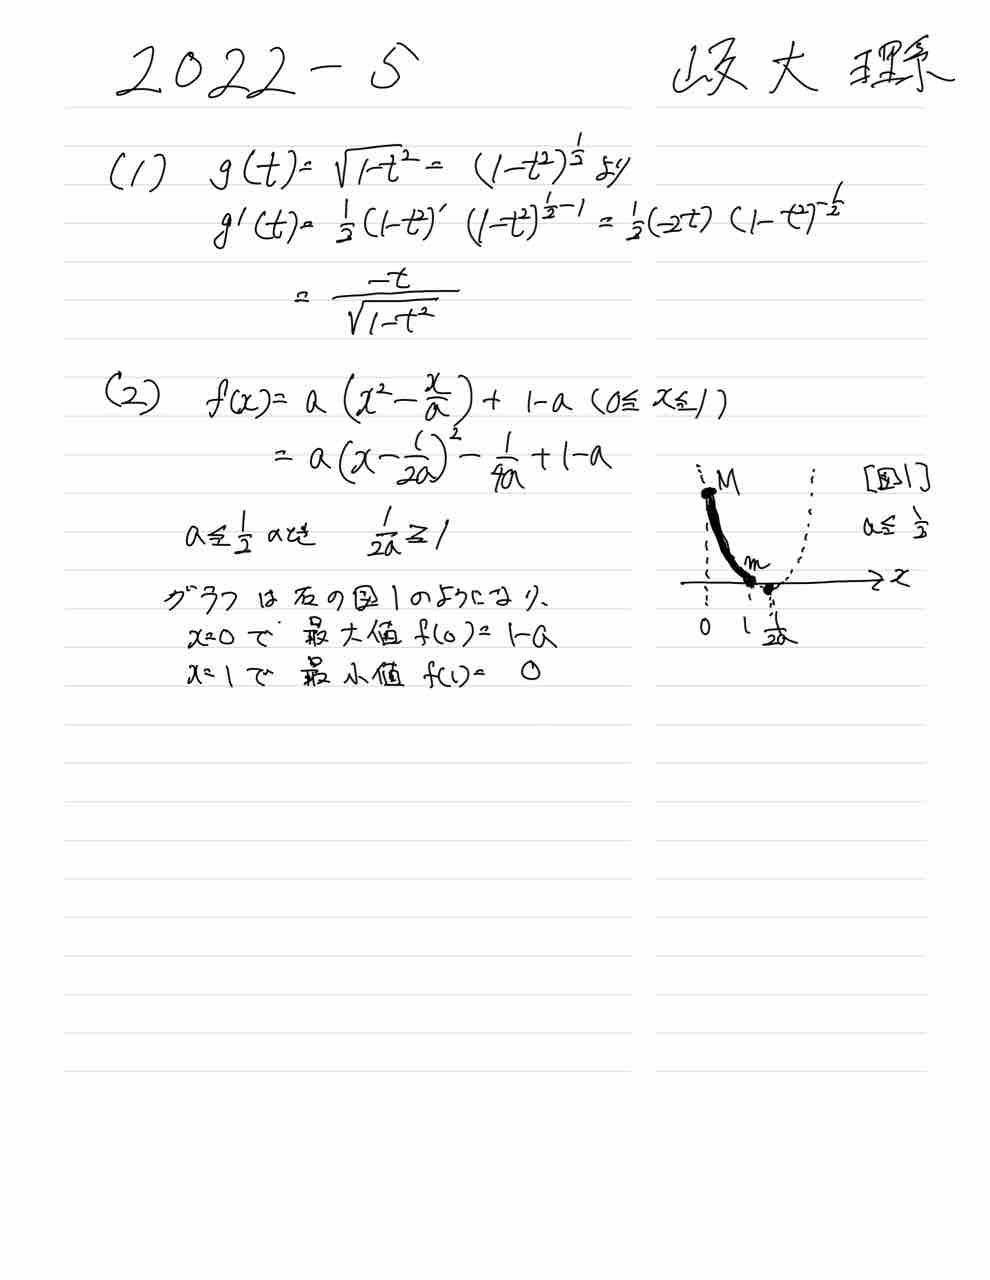 2022-5 岐大 理系
(1) g(t)= √1-t² = (1-t²)^{1/2} より
g'(t)= 1/2 (1-t²)' (1-t²)^{1/2 -1} = 1/2 (-2t) (1-t²)^{-1/2}
= -t/√1-t²
(2) f(x)= a (x² - x/a) + 1-a (0≦x≦1)
= a (x - 1/2a)² - 1/4a + 1-a
a≦1/2 のとき 1/2a ≧ 1
グラフは右の図1のようになり、
x=0で 最大値 f(0)= 1-a
x=1で 最小値 f(1)= 0
[図1]
a≦1/2
M
m
x
0 1 1/2a